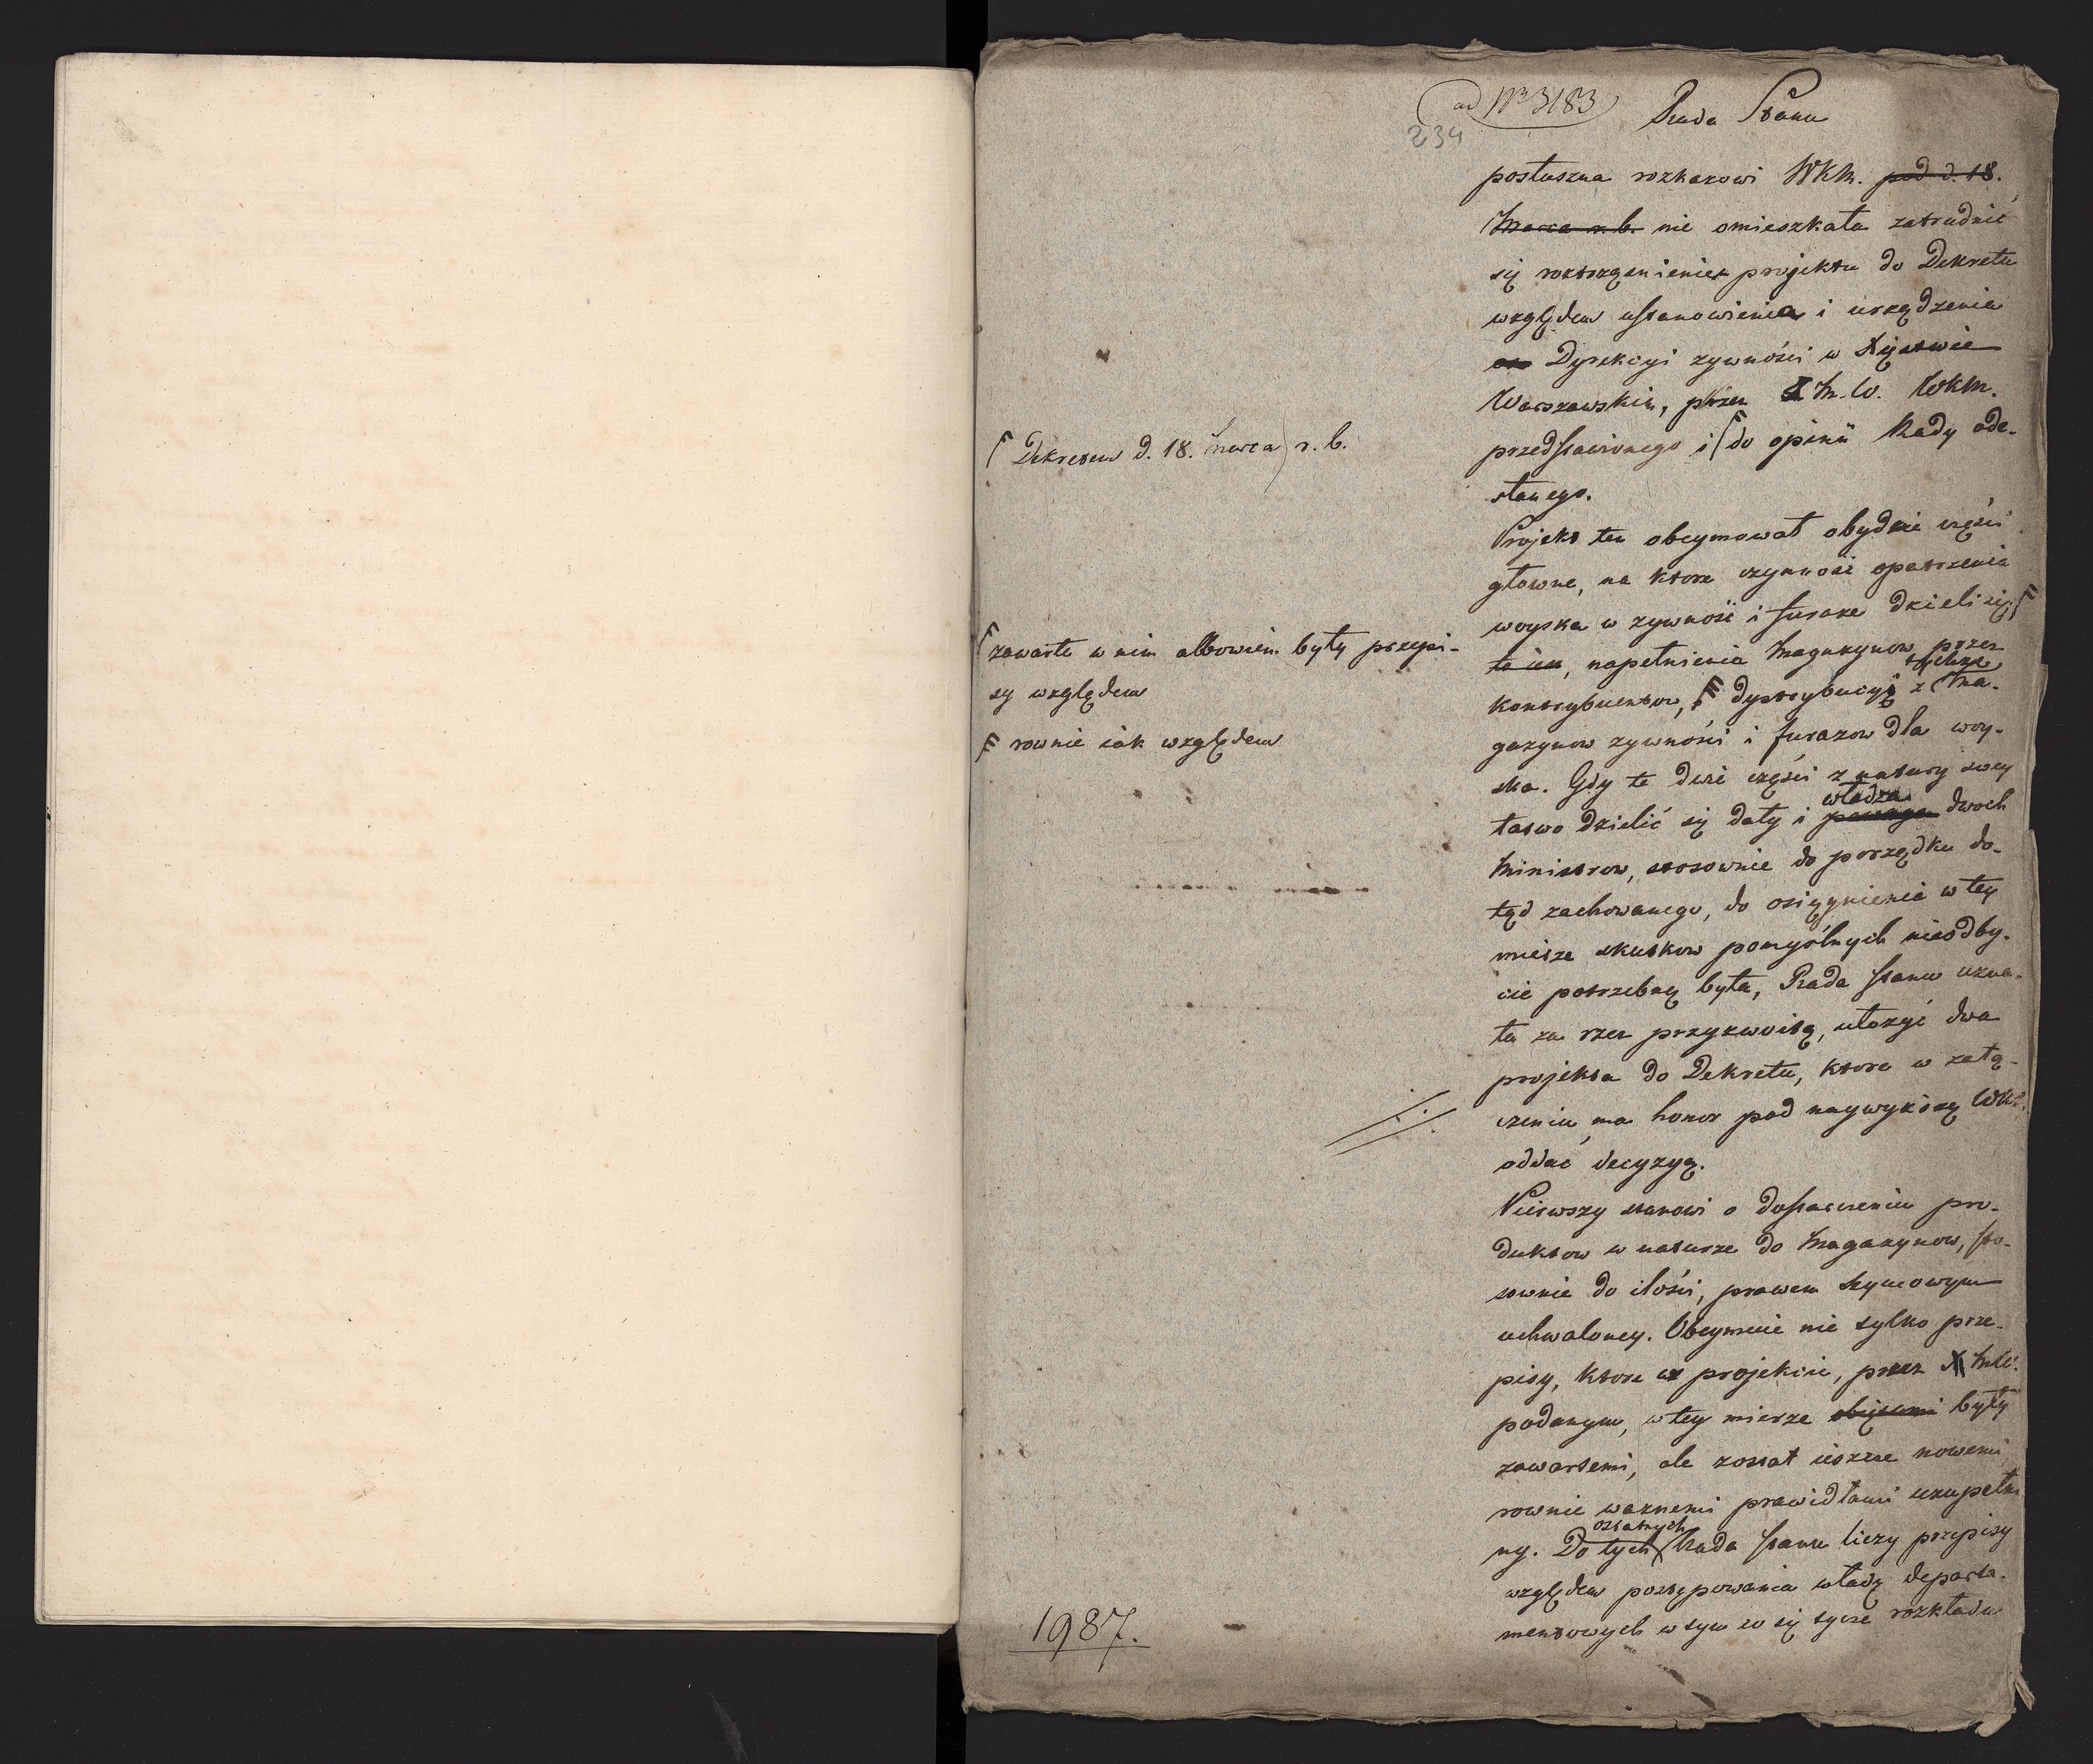 ad Nr 3183
234
Rada Stanu
posłuszna rozkazowi WKM. pod d. 18.
Marca r.b. nie omieszkała zatrudnić
się roztrząśnieniem projektu do Dekretu
względem ustanowienia i urządzenia
Dyrekcyi zywności w Xięstwie
Warszawskim, przez M.W. WKM.
przedstawionego i do opinii Rady ode-
słanego.
Dekretem d. 18. Marca r. b.
Projekt ten obeymował obydwie części
głowne, na ktore czynność opatrzenia
woyska w zywność i furaze dzieli się
to iest, napełnienia Magazynow przez
kontrybuentow, dystrybucyi z tychze Ma-
gazynow zywności i furazow dla woy-
ska. Gdy te dwie części z natury swey
łatwo dzielić się dały i władza dwoch
Ministrow, stosownie do porządku do-
tąd zachowanego, do osiągnienia w tey
mierze skutkow pomyślnych nieodby-
cie potrzebną była, Rada Stanu uzna-
ła za rzecz przyzwoitą, ułozyć dwa
projekta do Dekretu, ktore w załą-
czeniu ma honor pod naywyższą WKM.
oddać decyzyą.
zawarte w nim albowiem były przepi-
sy względem
rownie iak względem
Pierwszy stanowi o dostawieniu pro-
duktow w naturze do Magazynow, sto-
sownie do ilości, prawem Seymowym
uchwaloney. Obeymuie nie tylko prze-
pisy, ktore w projekcie, przez MW.
podanym, w tey mierze obiętemi były
zawartemi, ale został ieszcze nowemi
rownie waznemi prawidłami uzupełnio-
ny. Do tych ostatnych Rada Stanu liczy przepisy
względem postępowania władz departa-
mentowych w tym co się tycze rozkładu
1987.